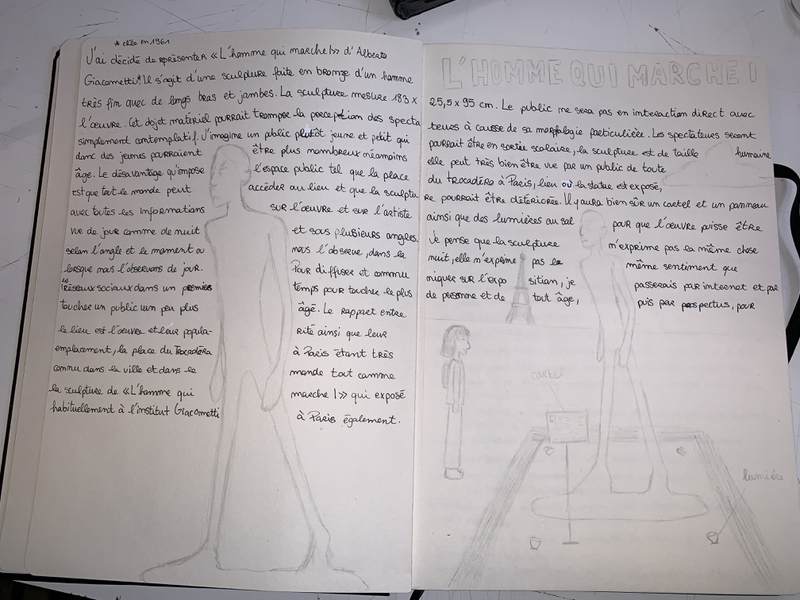 L'HOMME QUI MARCHE I
* crée en 1961
J'ai décidé de représenter « L'homme qui marche I » d'Alberto
Giacometti* il s'agit d'une sculpture faite en bronze d'un homme
très fin avec de longs bras et jambes. La sculpture mesure 183 x
25,5 x 95 cm. Le public ne sera pas en interaction direct avec
l'œuvre. Cet objet materiel pourrait trompe la perception des specta
teurs à causse de sa morphologie particulière. Les spectateurs seront
simplement contemplatif. J'imagine un public plutôt jeune et petit qui
pourrait être en sortie scolaire, la sculpture est de taille humaine
donc des jeunes pourraient être plus nombreux néamoins
elle peut très bien être vue par un public de toute
âge. Le désavantage qu'impose l'espace public tel que la place
du trocadéro à Paris, lieu où la statue est exposé,
est que tout le monde peut accéder au lieu et que la sculptu
re pourrait être déteriorée. Il y aura bien sûr un cartel et un panneau
avec toutes les informations sur l'œuvre et sur l'artiste
ainsi que des lumières au sol pour que l'œuvre puisse être
vue de jour comme de nuit et sous plusieurs angles.
Je pense que la sculpture n'exprime pas la même chose
selon l'angle et le moment où nous l'observe, dans la
nuit, elle n'exprime pas le même sentiment que
lorsque nous l'observons de jour. Pour diffuser et commu
niquer sur l'expo sition, je passerais par internet et par
les réseaux sociaux dans un premies temps pour toucher le plus
de personne et de tout âge, puis par prospectus, pour
toucher un public un peu plus âgé. Le rapport entre
le lieu est l'œuvre et leur popula- rité ainsi que leur
emplacement, la place du Trocadéro à Paris étant très
connu dans la ville et dans le monde tout comme
la sculpture de « L'homme qui marche I » qui exposé
habituellement à l'institut Giacometti à Paris également.
cartel
lumière